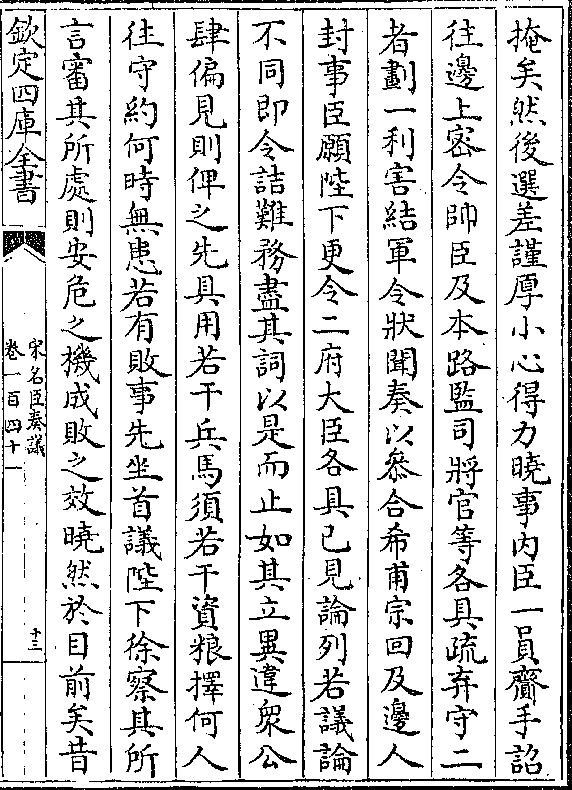 掩矣然後選差謹厚小心得力曉事内臣一員齎手詔
往邊上密令帥臣及本路監司將官等各具疏弃守二
者劃一利害結軍令狀聞奏以叅合希甫宗回及邊人
封事臣願陛下更令二府大臣各具已見論列若議論
不同即令詰難務盡其詞以是而止如其立異違衆公
肆偏見則俾之先具用若干兵馬須若干資粮擇何人
往守約何時無患若有敗事先坐首議陛下徐察其所
言審其所處則安危之機成敗之效曉然於目前矣昔
欽定四庫全書
宋名臣奏議
卷一百四十一
十三